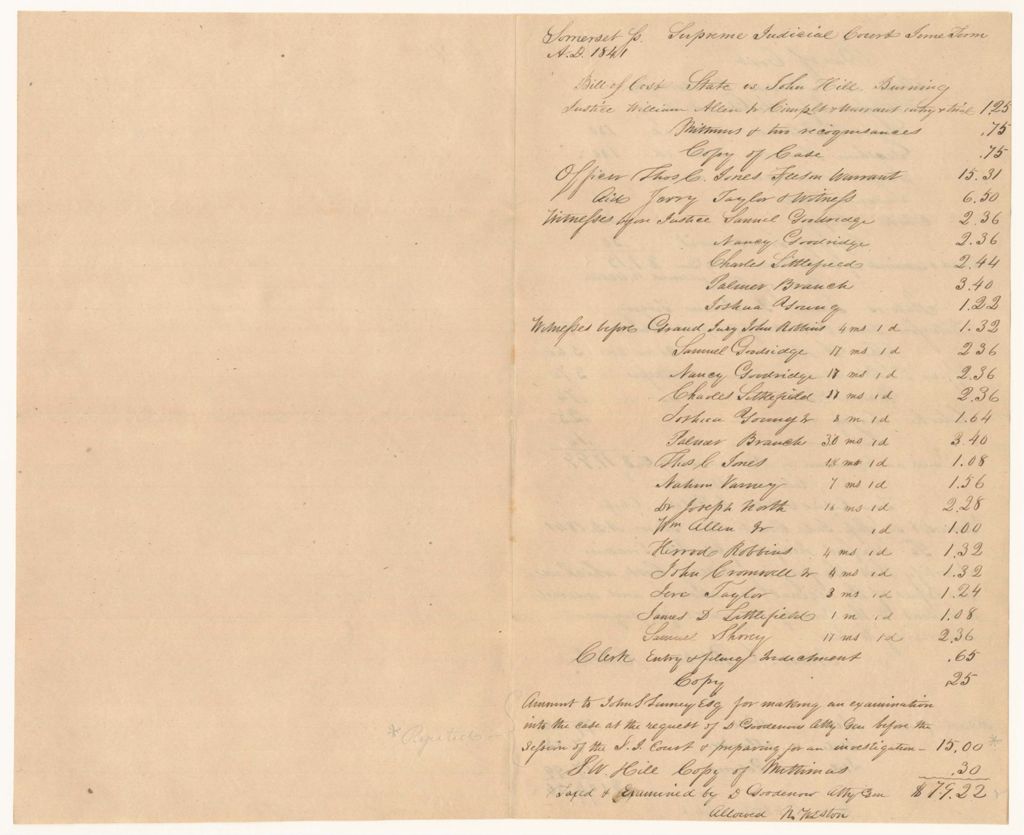 Somerset ss. Supreme Judicial Court June Term
A.D. 1841
Bill of Cost State vs John Hill. Burning
Justice William Allen Jr Complt & Warrant entry & trial 1.25
Mittimus & two recognisances .75
Copy of Case .75
Officer Thos C. Jones Fees on Warrant 15.31
Aid Jerry Taylor & Witness 6.50
Witnesses before Justice Samuel Goodridge 2.36
Nancy Goodridge 2.36
Charles Littlefield 2.44
Palmer Branch 3.40
Joshua Young 1.22
Witnesses before Grand Jury John Robbins 4 ms 1 d 1.32
Samuel Goodridge 17 ms 1 d 2.36
Nancy Goodridge 17 ms 1 d 2.36
Charles Littlefield 17 ms 1 d 2.36
Joshua Young Jr 8 m 1 d 1.64
Palmer Branch 30 ms 1 d 3.40
Thos C Jones ms 1 d 1.08
Nahum Varney 7 ms 1 d 1.56
Dr Joseph North 16 ms 1 d 2.28
Wm Allen Jr 1 d 1.00
Herrod Robbins 4 ms 1 d 1.32
John Cromwell Jr 4 ms 1 d 1.32
Jere Taylor 3 ms 1 d 1.24
James D Littlefield 1 m 1 d 1.08
Samuel Shorey 17 ms 1 d 2.36
Clerk Entry & filing Indictment .65
Copy .25
Amount to John S Esq for making an examination
into the case at the request of D Goodenow Atty Gen before the
Session of the S. J. Court & preparing for an investigation - 15.00 *
* Rejected
S W. Hill Copy of Mittimus .30
Taxed & Examined by D Goodenow Atty Gen $79.22
Allowed N. Weston